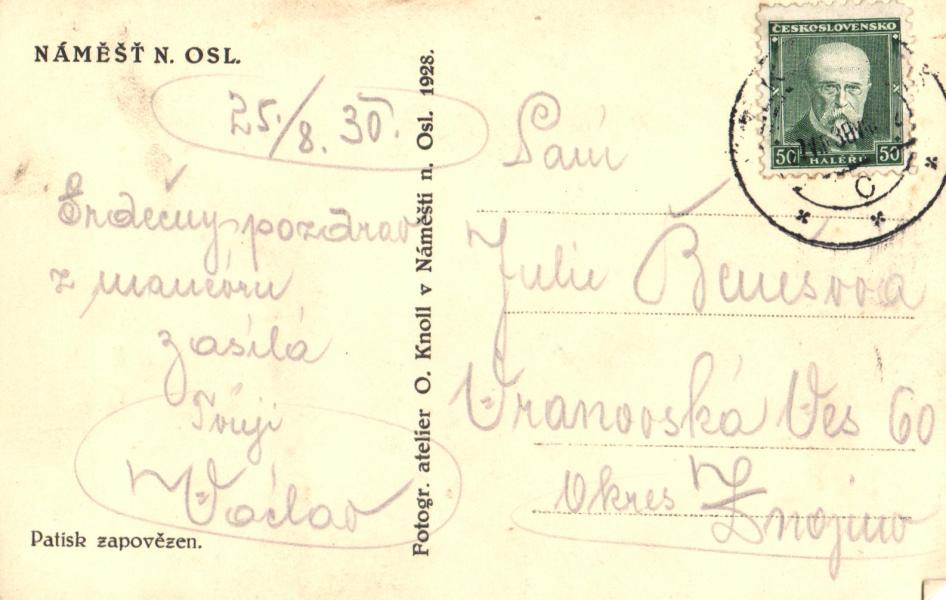 NÁMĚŠŤ N. OSL.
25./8. 30.
Srdečný pozdrav
z manévru
zasílá
Tvůj
Václav
Patisk zapovězen.
Fotogr. atelier O. Knoll v Náměšti n. Osl. 1928.
ČESKOSLOVENSKO
50 HALÉŘŮ 50
C
Paní
Julie Benešová
Vranovská Ves 60
Okres Znojmo